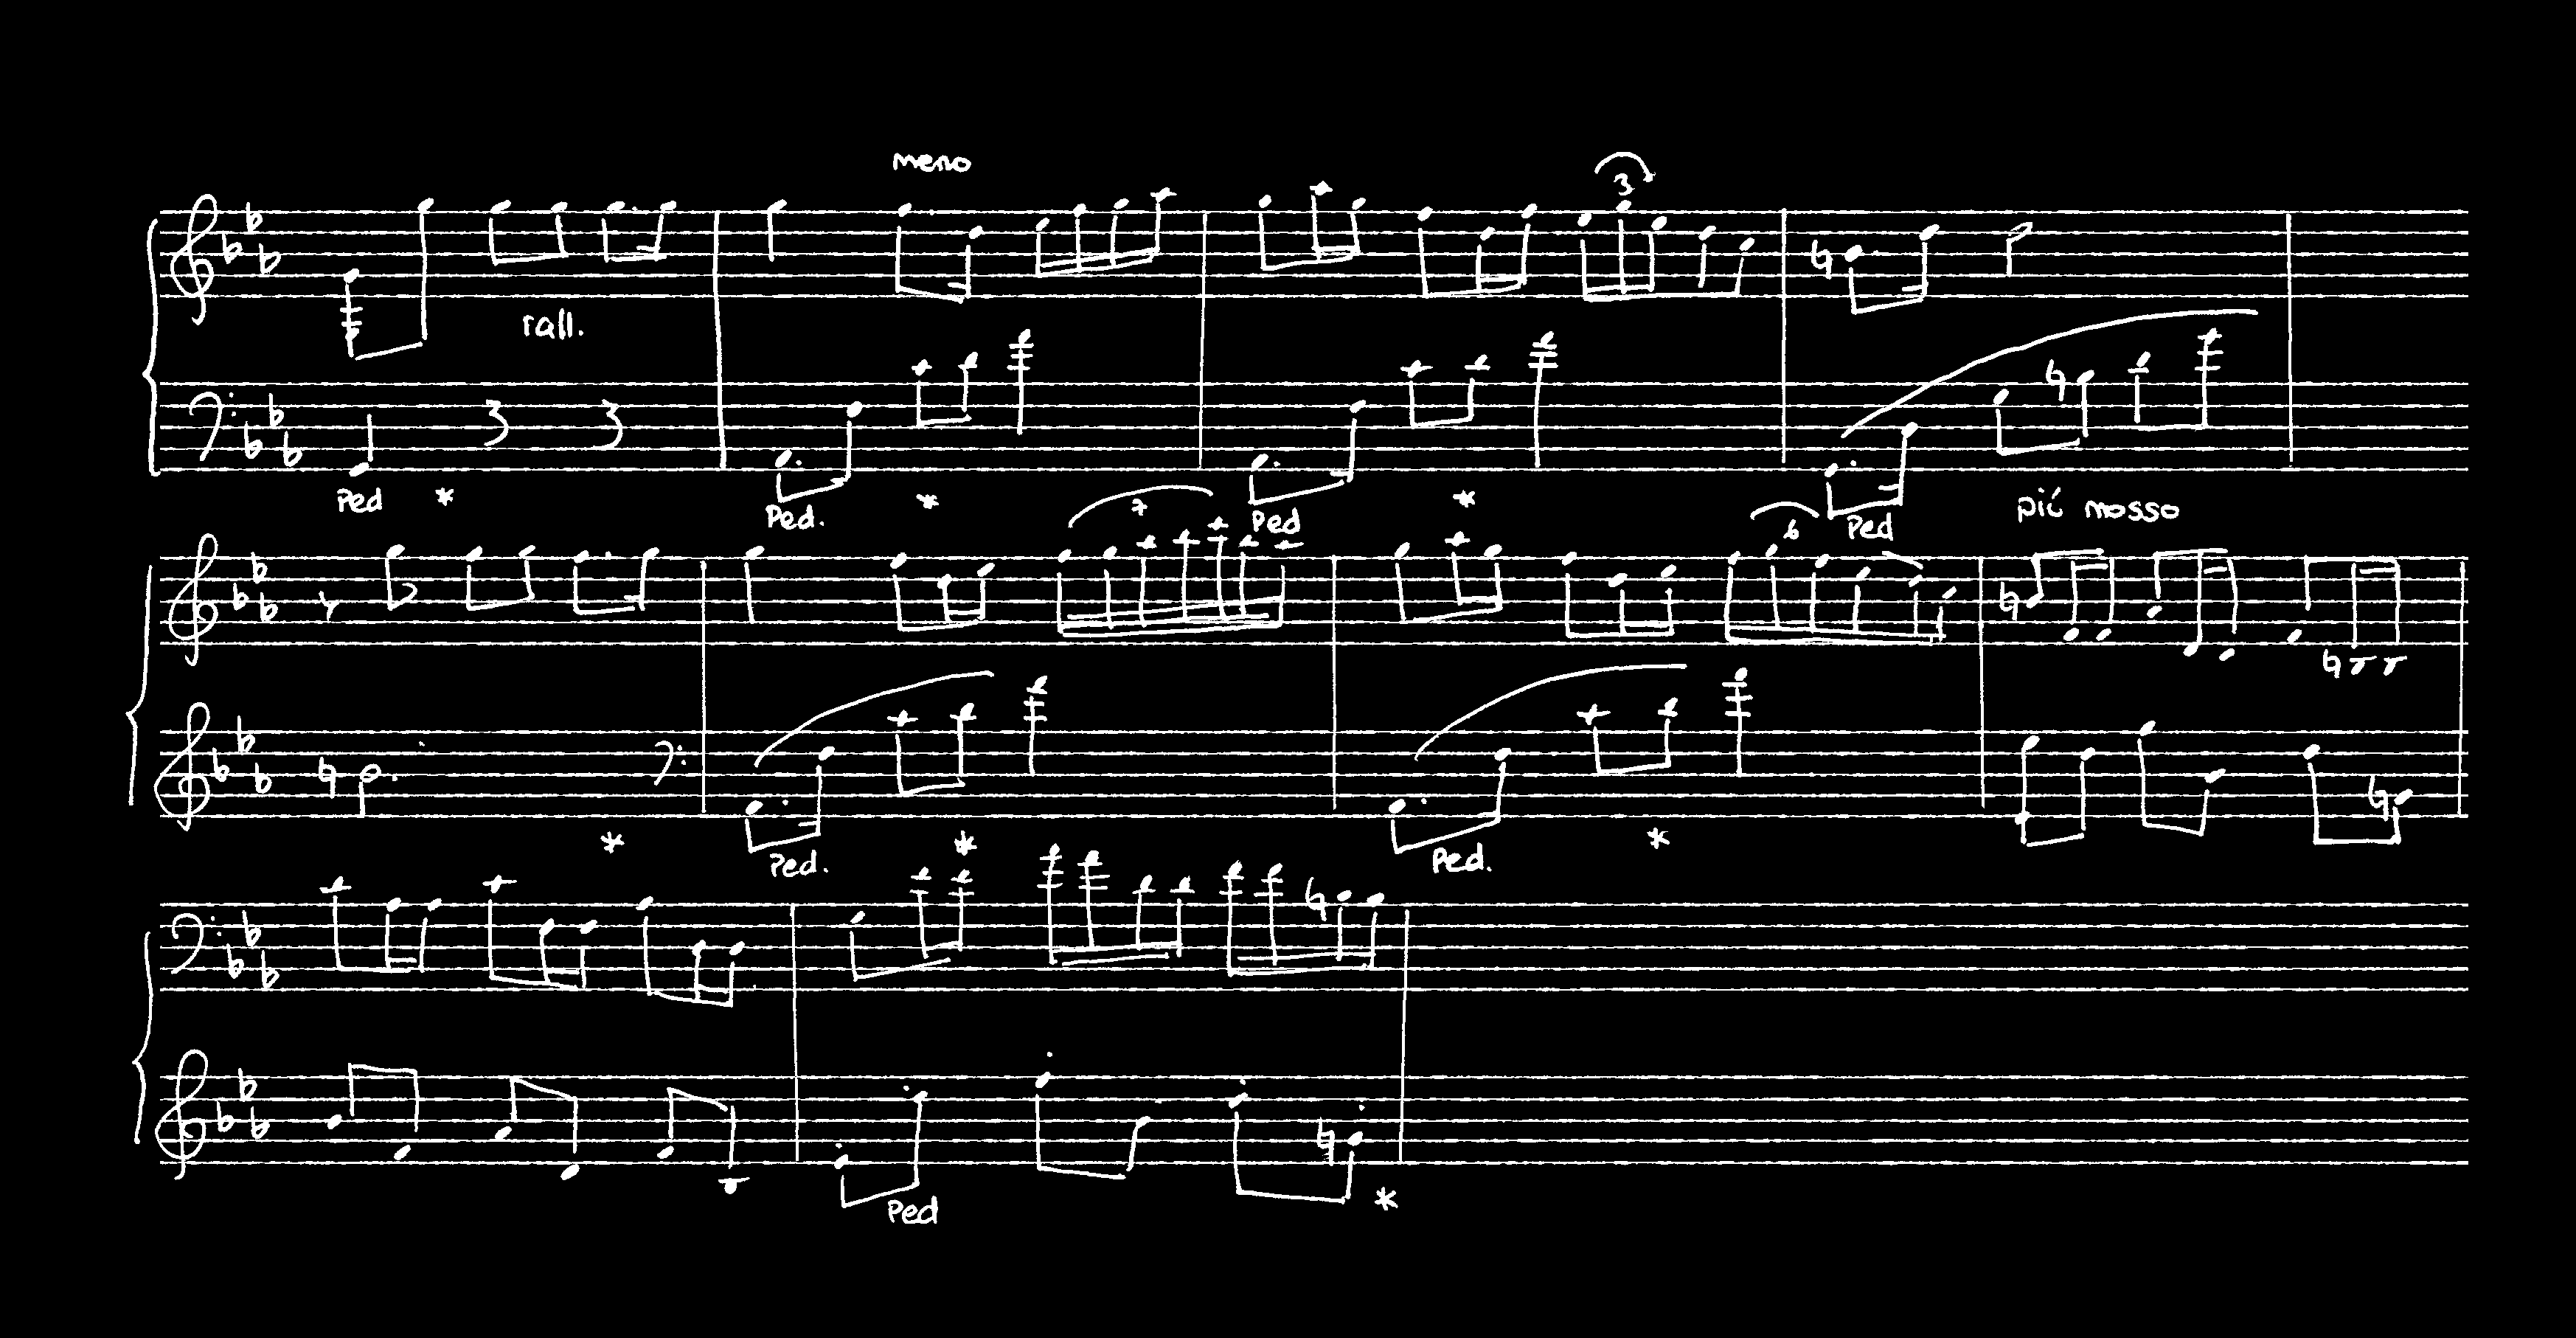 meno
3
rall.
Ped * Ped. * Ped * Ped
più mosso
7 6
* Ped. * Ped. *
Ped *